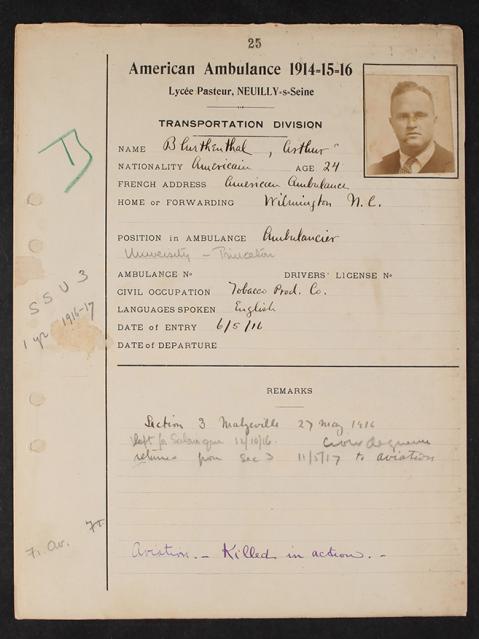 25
American Ambulance 1914-15-16
Lycée Pasteur, NEUILLY-s-Seine
TRANSPORTATION DIVISION
NAME Bluethenthal, Arthur
NATIONALITY Americain AGE 24
FRENCH ADDRESS American Ambulance
HOME OR FORWARDING Wilmington N.C.
POSITION in AMBULANCE Ambulancier
University - Princeton
AMBULANCE No DRIVERS' LICENSE No
CIVIL OCCUPATION Tobacco Prod. Co.
LANGUAGES SPOKEN English
DATE of ENTRY 6/5/16
DATE of DEPARTURE
SSU 3
1 yr 1916-17
REMARKS
Section 3 Malzeville 27 May 1916
left for Salonique 12/10/16. Croix de guerre
returned from Sec 3 11/5/17 to aviation
Fr. Av. Fr.
Aviation. - Killed in action. -